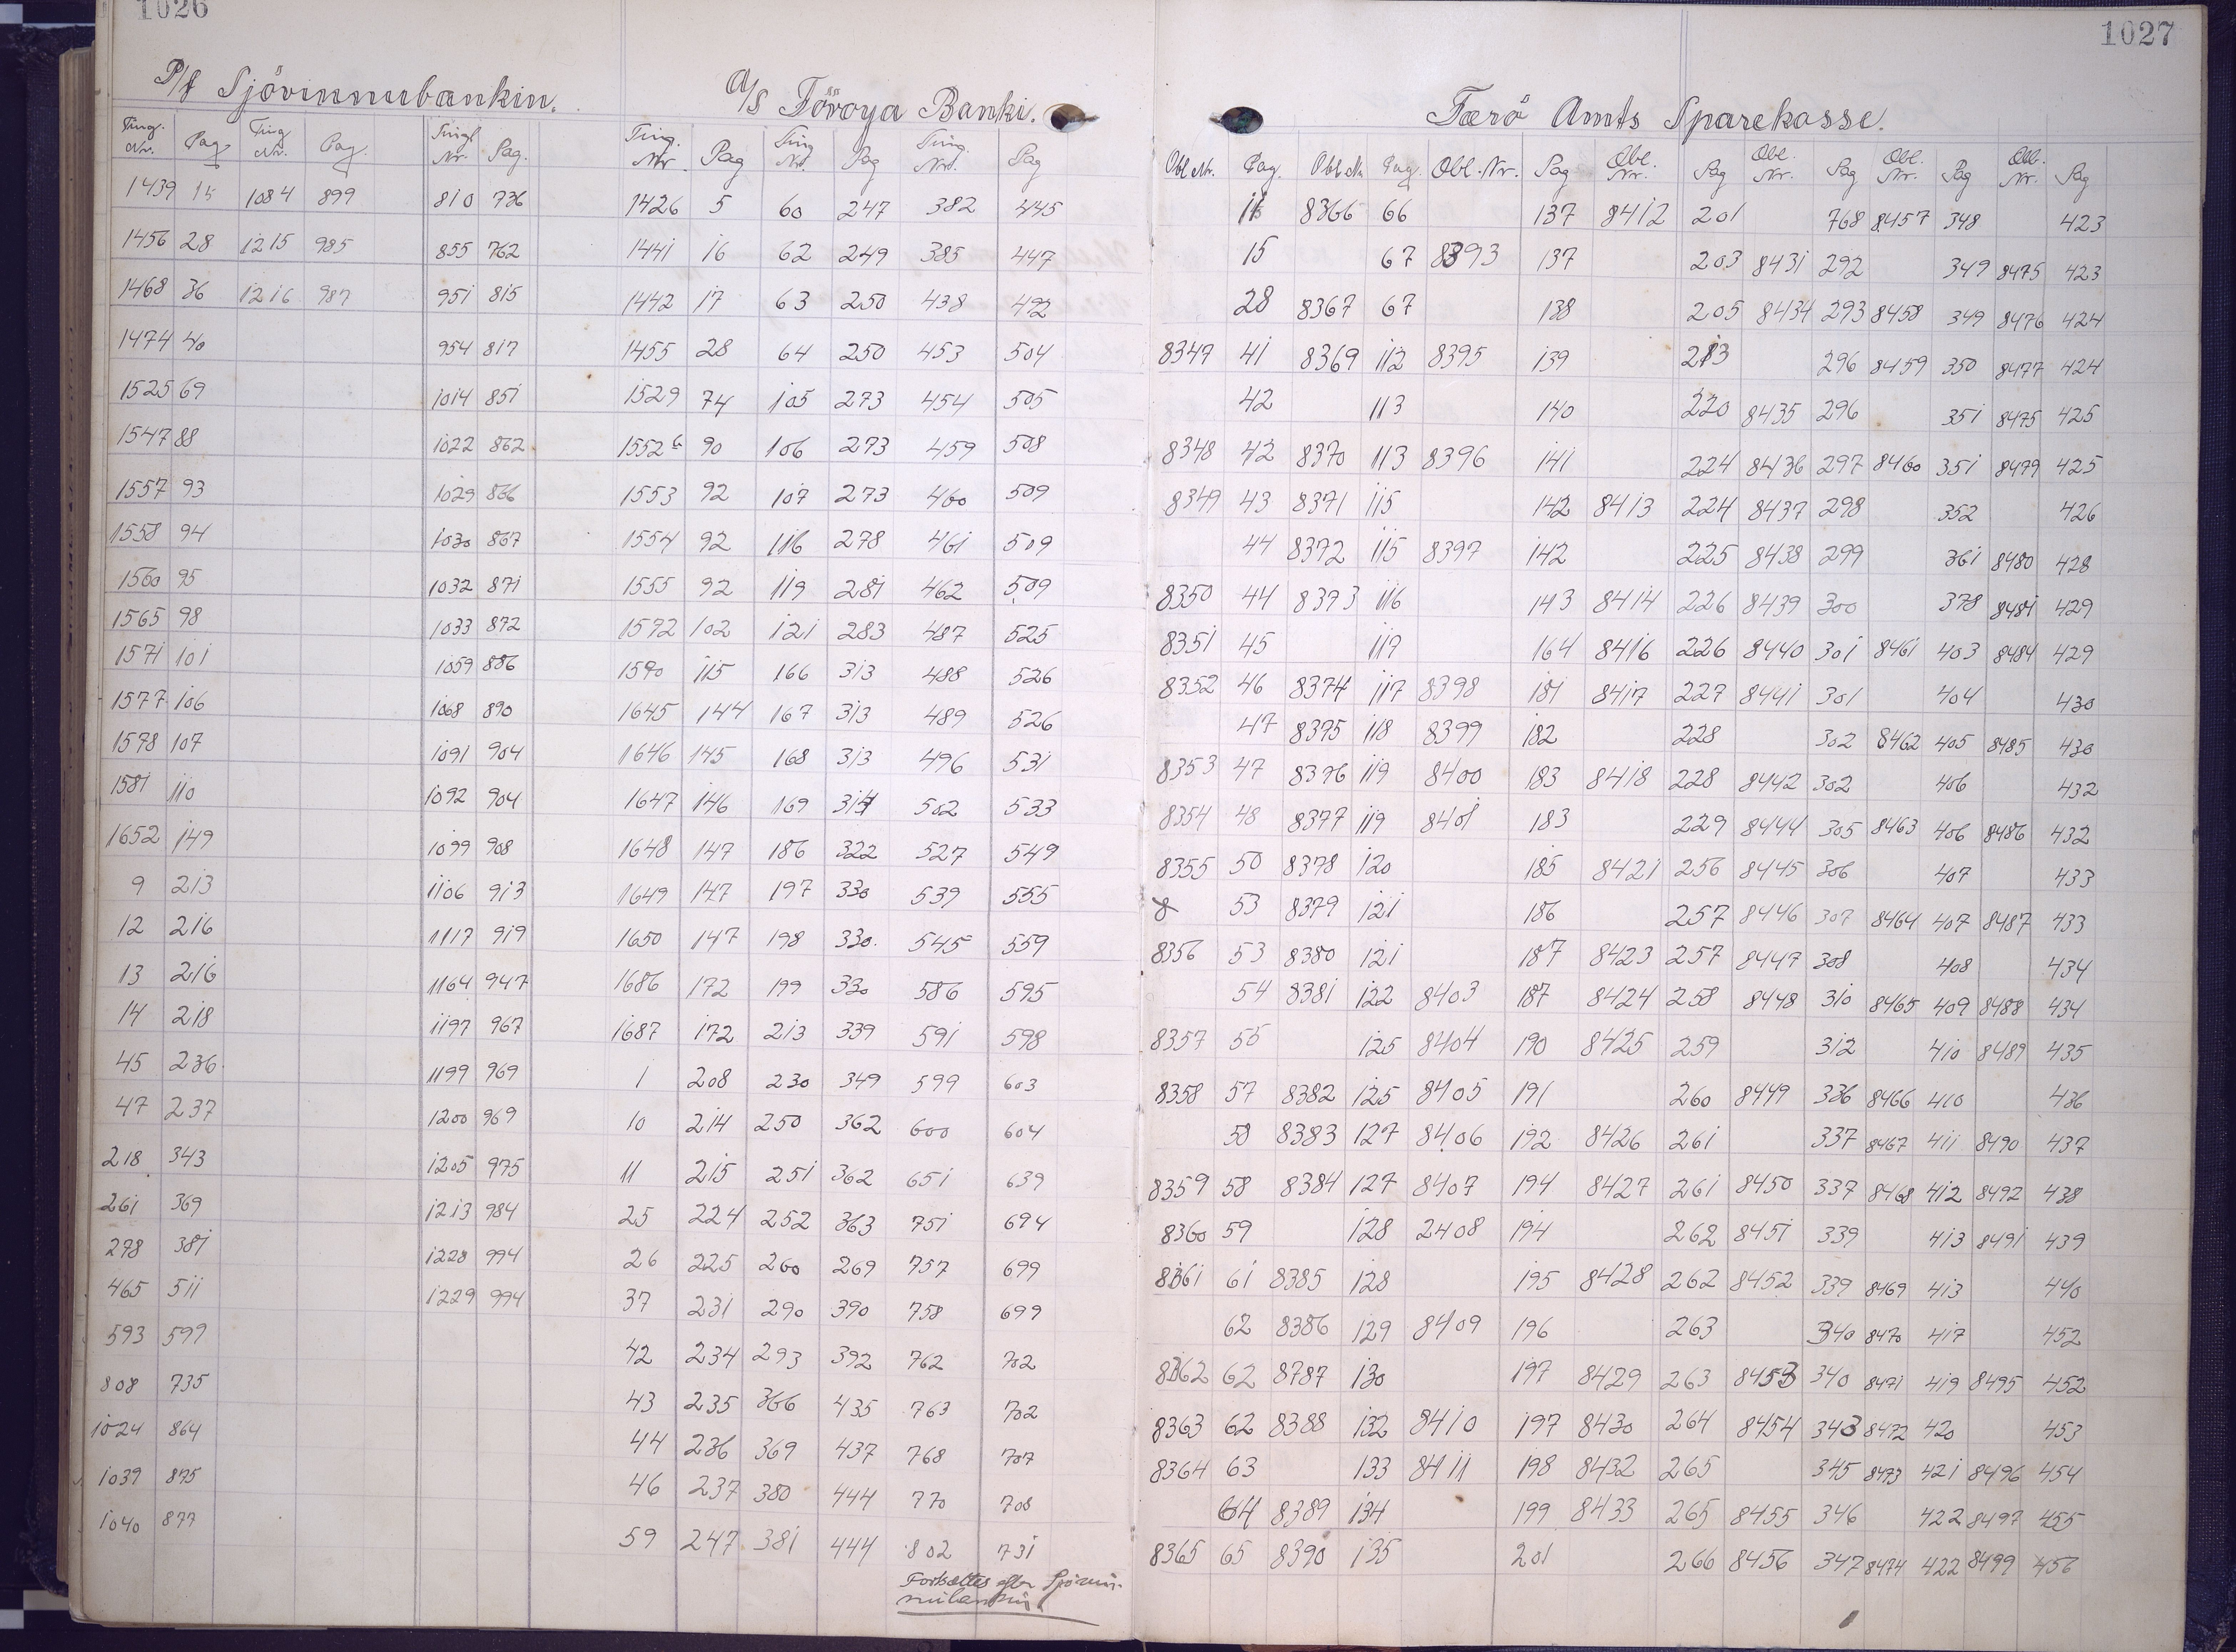 1026
P/f Sjóvinnubankin.
A/S Föroya Banki.
Ting. Nr. Pag Ting Nr. Pag. Tingl Nr. Pag. Ting. Nr. Pag Ting Nr. Pag Ting. Nr. Pag
1439 15 1084 899 810 736 1426 5 60 247 382 445
1456 28 1215 985 855 762 1441 16 62 249 385 447
1468 36 1216 987 951 815 1442 17 63 250 438 492
1474 40 954 817 1455 28 64 250 453 504
1525 69 1014 851 1529 74 105 273 454 505
1547 88 1022 862 1552 90 106 273 459 508
1557 93 1029 866 1553 92 107 273 460 509
1558 94 1030 867 1554 92 116 278 461 509
1560 95 1032 871 1555 92 119 281 462 509
1565 98 1033 872 1572 102 121 283 487 525
1571 101 1059 886 1590 115 166 313 488 526
1577 106 1068 890 1645 144 167 313 489 526
1578 107 1091 904 1646 145 168 313 496 531
1581 110 1092 904 1647 146 169 314 502 533
1652 149 1099 908 1648 147 186 322 527 549
9 213 1106 913 1649 147 197 330 539 555
12 216 1117 919 1650 147 198 330 545 559
13 216 1164 947 1686 172 199 330 586 595
14 218 1197 967 1687 172 213 339 591 598
45 236 1199 969 1 208 230 349 599 603
47 237 1200 969 10 214 250 362 600 604
218 343 1205 975 11 215 251 362 651 639
261 369 1213 984 25 224 252 363 751 694
278 381 1228 994 26 225 260 269 757 699
465 511 1229 994 37 231 290 390 758 699
593 599 42 234 293 392 762 702
808 735 43 235 366 435 763 702
1024 864 44 236 369 437 768 707
1039 875 46 237 380 444 770 708
1040 877 59 247 381 444 802 731
Fortsættes efter Sjóvin-
nubankin
1027
Færö Amts Sparekasse.
Obl. Nr. Pag. Obl. Nr. Pag. Obl. Nr. Pag Obl. Nr. Pag Obl. Nr. Pag Obl. Nr. Pag Obl. Nr. Pag
11 8366 66 137 8412 201 768 8457 348 423
15 67 8393 137 203 8431 292 349 8475 423
28 8367 67 138 205 8434 293 8458 349 8476 424
8347 41 8369 112 8395 139 213 296 8459 350 8477 424
42 113 140 220 8435 296 351 8475 425
8348 42 8370 113 8396 141 224 8436 297 8460 351 8479 425
8349 43 8371 115 142 8413 224 8437 298 352 426
44 8372 115 8397 142 225 8438 299 361 8480 428
8350 44 8373 116 143 8414 226 8439 300 378 8481 429
8351 45 117 164 8416 226 8440 301 8461 403 8484 429
8352 46 8374 117 8398 181 8417 227 8441 301 404 430
47 8375 118 8399 182 228 302 8462 405 8485 430
8353 47 8376 119 8400 183 8418 228 8442 302 406 432
8354 48 8377 119 8401 183 229 8444 305 8463 406 8486 432
8355 50 8378 120 185 8421 256 8445 306 407 433
8 53 8379 121 186 257 8446 307 8464 407 8487 433
8356 53 8380 121 187 8423 257 8447 308 408 434
54 8381 122 8403 187 8424 258 8448 310 8465 409 8488 434
8357 55 125 8404 190 8425 259 312 410 8489 435
8358 57 8382 125 8405 191 260 8449 336 8466 410 436
58 8383 127 8406 192 8426 261 337 8467 411 8490 437
8359 58 8384 127 8407 194 8427 261 8450 337 8468 412 8492 438
8360 59 128 2408 194 262 8451 339 413 8491 439
8361 61 8385 128 195 8428 262 8452 339 8469 413 440
62 8386 129 8409 196 263 340 8470 417 452
8362 62 8787 130 197 8429 263 8453 340 8471 419 8495 452
8363 62 8388 132 8410 197 8430 264 8454 343 8472 420 453
8364 63 133 8411 198 8432 265 345 8473 421 8496 454
64 8389 134 199 8433 265 8455 346 422 8497 455
8365 65 8390 135 201 266 8456 347 8474 422 8499 456